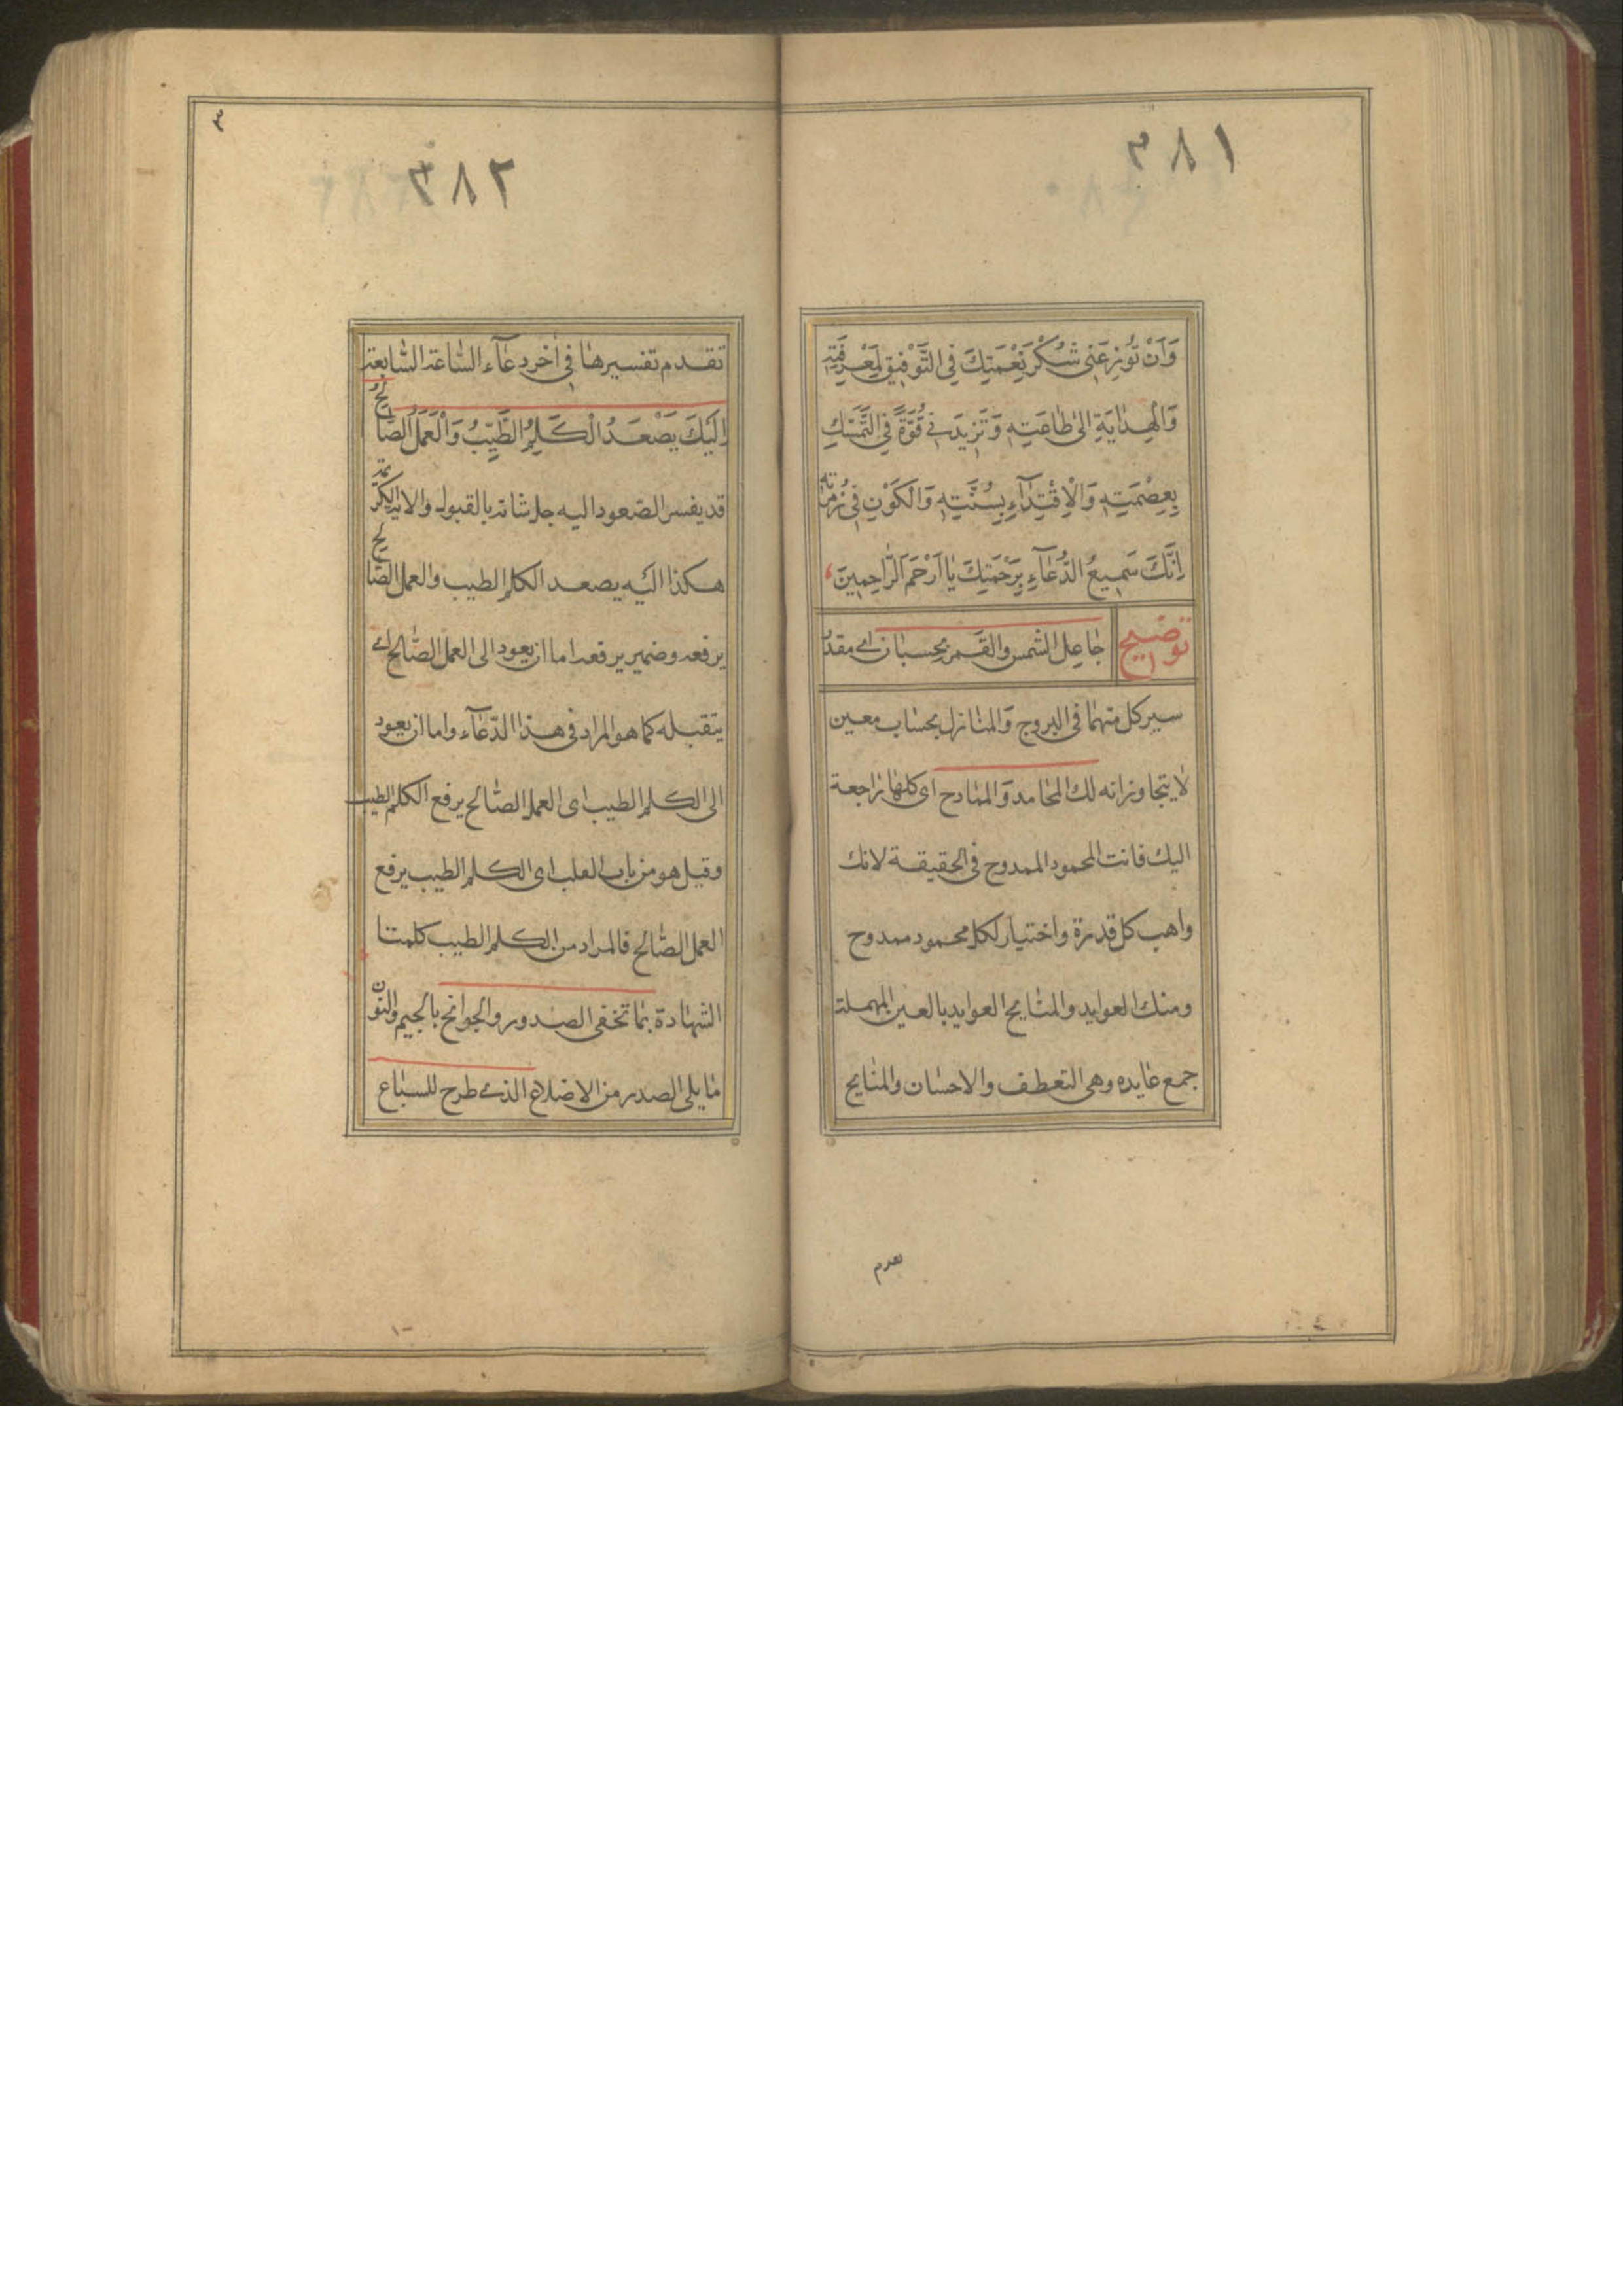 ٣٨١
وَاَنْ تُوْزِعَنِى شُكْرَ نِعْمَتِكَ فِى التَّوْفِيقِ لِمَعْرِفَتِهِ
وَالْهِدٰايَةِ اِلىٰ طٰاعَتِهِ وَتَزِيدَنِى قُوَّةً فِى التَّمَسُّكِ
بِعِصْمَتِهِ وَالْاِقْتِدٰآءِ بِسُنَّتِهِ وَالْكَوْنِ فِى زُمْرَتِهِ
اِنَّكَ سَمِيعُ الدُّعٰآءِ بِرَحْمَتِكَ يٰا اَرْحَمَ الرّٰاحِمِينَ
توضيح جٰاعل الشمس والقمر بحسبٰان اى مقدر
سير كل منهمٰا فى البروج والمنٰازل بحسٰاب معين
لا يتجاوزانه لك المحٰامد والممٰادح اى كلهٰا راجعة
اليك فانت المحمود الممدوح فى الحقيقة لانك
واهب كل قدرة واختيار لكل محمود ممدوح
ومنك العوايد والمنٰايح العوايد بالعين المهملة
جمع عٰايده وهى التعطف والاحسٰان والمنٰايح
تقدم
٣
٣٨٢
تقدم تفسيرهٰا فى اٰخر دعٰآء السّٰاعة السّٰابعة
اِلَيْكَ يَصْعَدُ الْكَلِمُ الطَّيِّبُ وَالْعَمَلُ الصّٰالِحُ
قد يفسر الصعود اليه جل شانه بالقبول والاية الكريمة
هكذا اليه يصعد الكلم الطيب والعمل الصّٰالح
يرفعه وضمير يرفعه اما ان يعود الى العمل الصّٰالح اى
يتقبله كما هو المراد فى هذا الدّعٰآء واما ان يعود
الى الكلم الطيب اى العمل الصّٰالح يرفع الكلم الطيب
وقيل هو من باب القلب اى الكلم الطيب يرفع
العمل الصّٰالح فالمراد من الكلم الطيب كلمتا
الشهٰادة بمٰا تخفى الصدور والجوانح بالجيم والنون
مٰا يلى الصدر من الاضلاع الذى طرح للسبٰاع